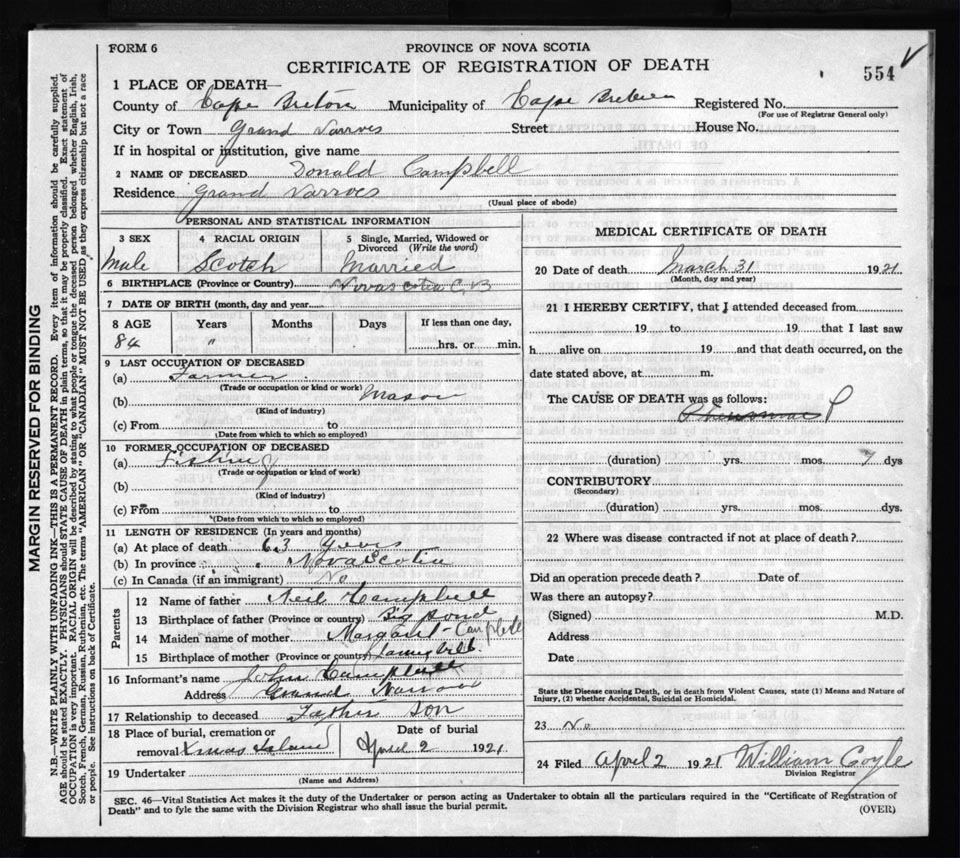 FORM 6
PROVINCE OF NOVA SCOTIA
CERTIFICATE OF REGISTRATION OF DEATH
554
1 PLACE OF DEATH—
County of Cape Breton Municipality of Cape Breton Registered No.
(For use of Registrar General only)
City or Town Grand Narrows Street House No.
If in hospital or institution, give name
2 NAME OF DECEASED Donald Campbell
Residence Grand Narrows
(Usual place of abode)
PERSONAL AND STATISTICAL INFORMATION
3 SEX Male
4 RACIAL ORIGIN Scotch
5 Single, Married, Widowed or Divorced (Write the word) Married
6 BIRTHPLACE (Province or Country) Novascotia C.B
7 DATE OF BIRTH (month, day and year
8 AGE Years Months Days If less than one day,
84 " hrs. or min.
9 LAST OCCUPATION OF DECEASED
(a) Farmer
(Trade or occupation or kind or work)
(b) Mason
(Kind of industry)
(c) From to
(Date from which to which so employed)
10 FORMER OCCUPATION OF DECEASED
(a) Fishing
(Trade or occupation or kind of work)
(b)
(Kind of industry)
(c) From to
(Date from which to which so employed)
11 LENGTH OF RESIDENCE (In years and months)
(a) At place of death 63 years
(b) In province Nova Scotia
(c) In Canada (if an immigrant) No
Parents
12 Name of father Neil Campbell
13 Birthplace of father (Province or country)
14 Maiden name of mother Margaret Campbell
15 Birthplace of mother (Province or country)
16 Informant's name John Campbell
Address Grand Narrows
17 Relationship to deceased Father Son
18 Place of burial, cremation or removal Xmas Island
Date of burial April 2 1921
19 Undertaker
(Name and Address)
MEDICAL CERTIFICATE OF DEATH
20 Date of death March 31 1921
(Month, day and year)
21 I HEREBY CERTIFY, that I attended deceased from
19 to 19 that I last saw
h alive on 19 and that death occurred, on the
date stated above, at m.
The CAUSE OF DEATH was as follows:
(duration) yrs. mos. 7 dys
CONTRIBUTORY
(Secondary)
(duration) yrs. mos. dys.
22 Where was disease contracted if not at place of death?
Did an operation precede death? Date of
Was there an autopsy?
(Signed) M.D.
Address
Date
State the Disease causing Death, or in death from Violent Causes, state (1) Means and Nature of
Injury, (2) whether Accidental, Suicidal or Homicidal.
23 No
24 Filed April 2 1921 William Coyle
Division Registrar
SEC. 46—Vital Statistics Act makes it the duty of the Undertaker or person acting as Undertaker to obtain all the particulars required in the "Certificate of Registration of
Death" and to fyle the same with the Division Registrar who shall issue the burial permit.
(OVER)
MARGIN RESERVED FOR BINDING
N.B.—WRITE PLAINLY WITH UNFADING INK—THIS IS A PERMANENT RECORD. Every item of information should be carefully supplied.
AGE should be stated EXACTLY. PHYSICIANS should STATE CAUSE OF DEATH in plain terms, so that it may be properly classified. Exact statement of
OCCUPATION is very important. RACIAL ORIGIN will be described by stating to what people or tongue the deceased person belonged whether English, Irish,
Scotch, French, German, Russian, Ruthenian, etc. The terms "AMERICAN" OR "CANADIAN" MUST NOT BE USED as they express citizenship but not a race
or people. See instructions on back of Certificate.